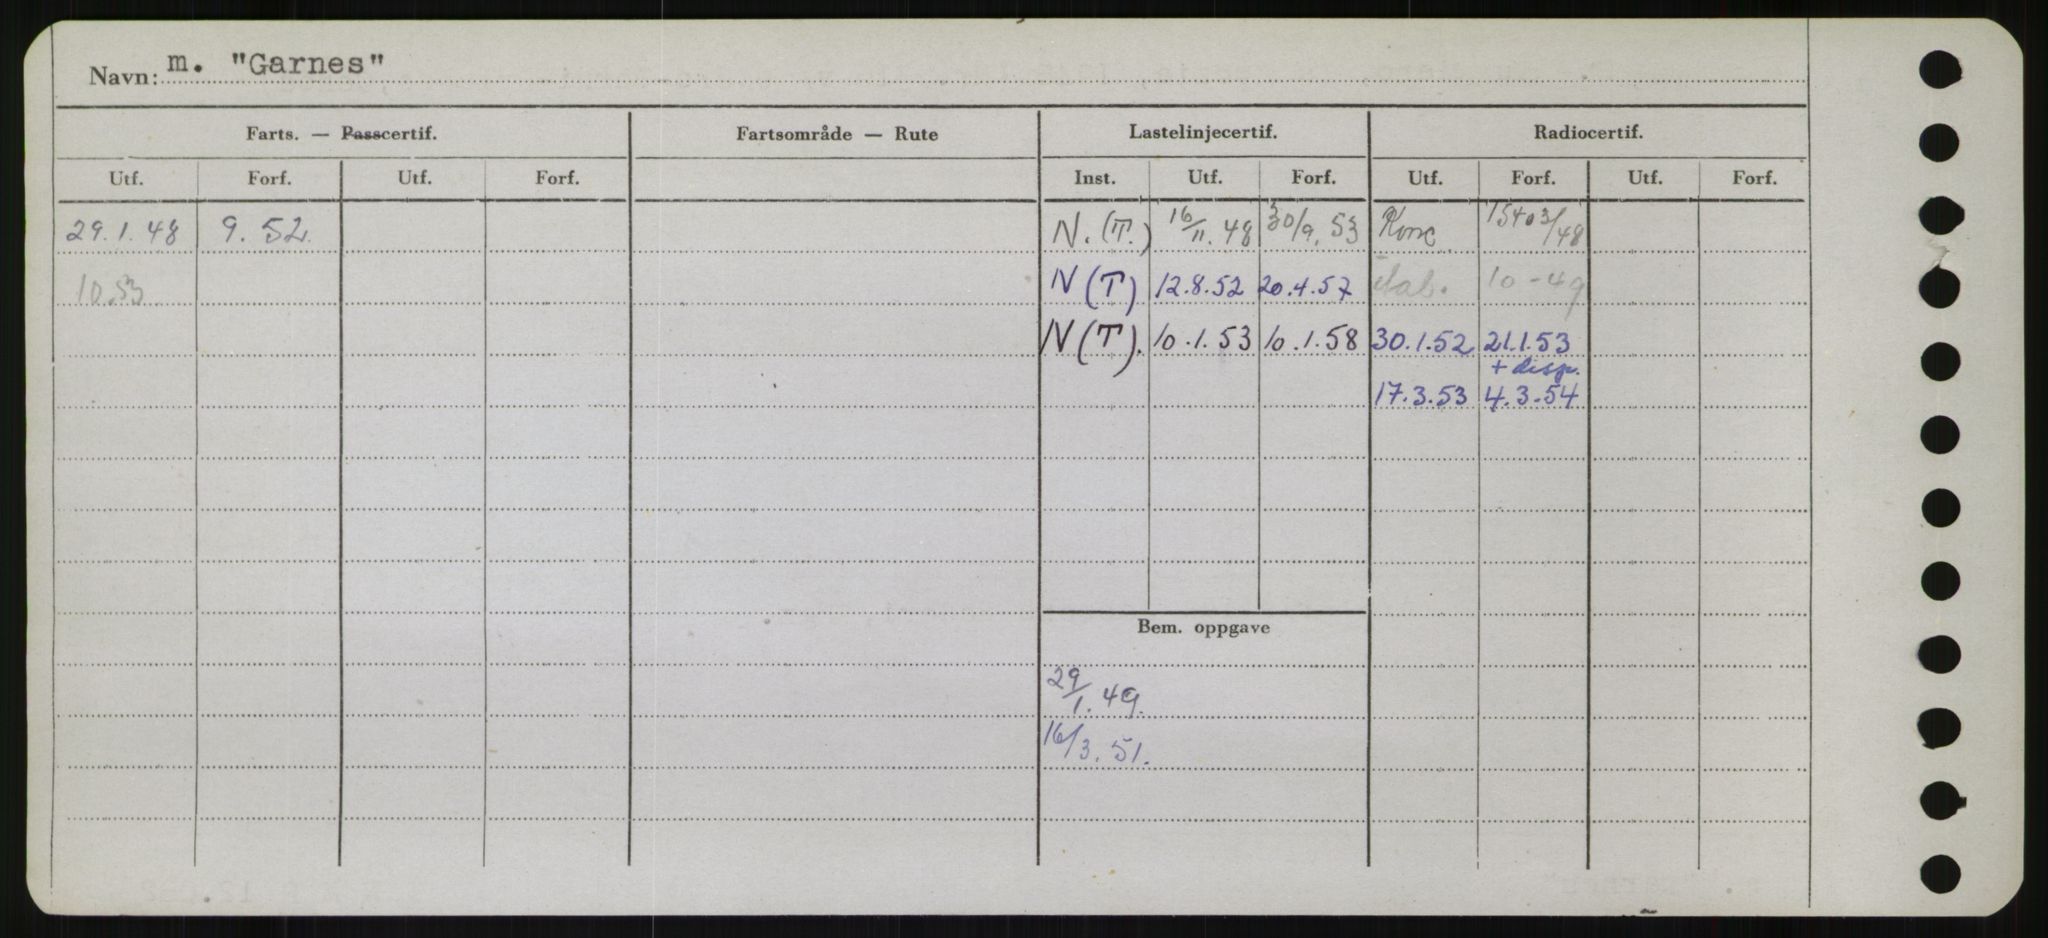 Navn: m. "Garnes"
Farts. — Passcertif. Fartsområde — Rute Lastelinjecertif. Radiocertif.
Utf. Forf. Utf. Forf. Inst. Utf. Forf. Utf. Forf. Utf. Forf.
29.1.48 9.52. N.(T.) 16/11.48 30/9.53 3/48
10.53 N(T) 12.8.52 20.4.57 10-49
N(T). 10.1.53 10.1.58 30.1.52 21.1.53
+ disp.
17.3.53 4.3.54
Bem. oppgave
29/1.49.
16/3.51.